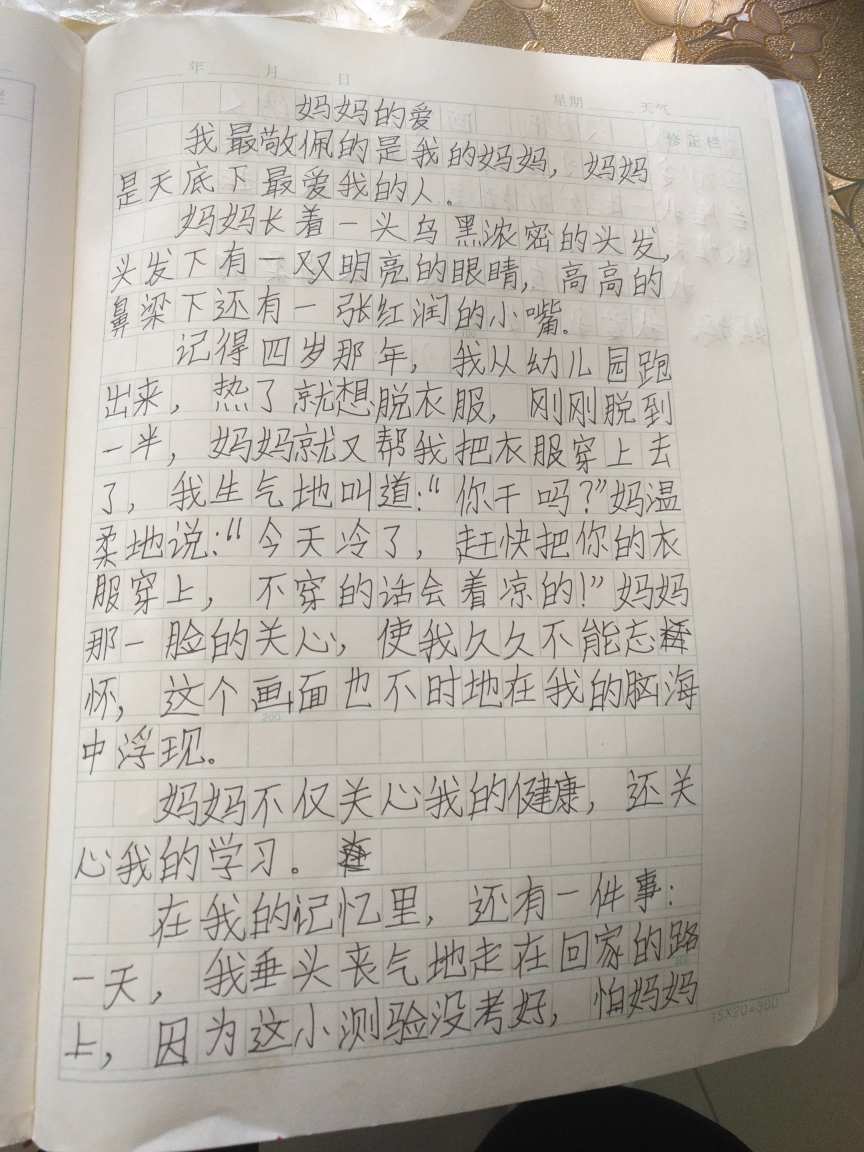 年 月 日
星期 天气
妈妈的爱
修正栏
我最敬佩的是我的妈妈，妈妈
是天底下最爱我的人。
妈妈长着一头乌黑浓密的头发，
头发下有一双明亮的眼睛，高高的
鼻梁下还有一张红润的小嘴。
记得四岁那年，我从幼儿园跑
出来，热了就想脱衣服，刚刚脱到
一半，妈妈就又帮我把衣服穿上去
了，我生气地叫道：“你干吗？”妈温
柔地说：“今天冷了，赶快把你的衣
服穿上，不穿的话会着凉的！”妈妈
那一脸的关心，使我久久不能忘
怀，这个画面也不时地在我的脑海
200
中浮现。
妈妈不仅关心我的健康，还关
心我的学习。
在我的记忆里，还有一件事：
一天，我垂头丧气地走在回家的路
上，因为这小测验没考好，怕妈妈
15×20=300